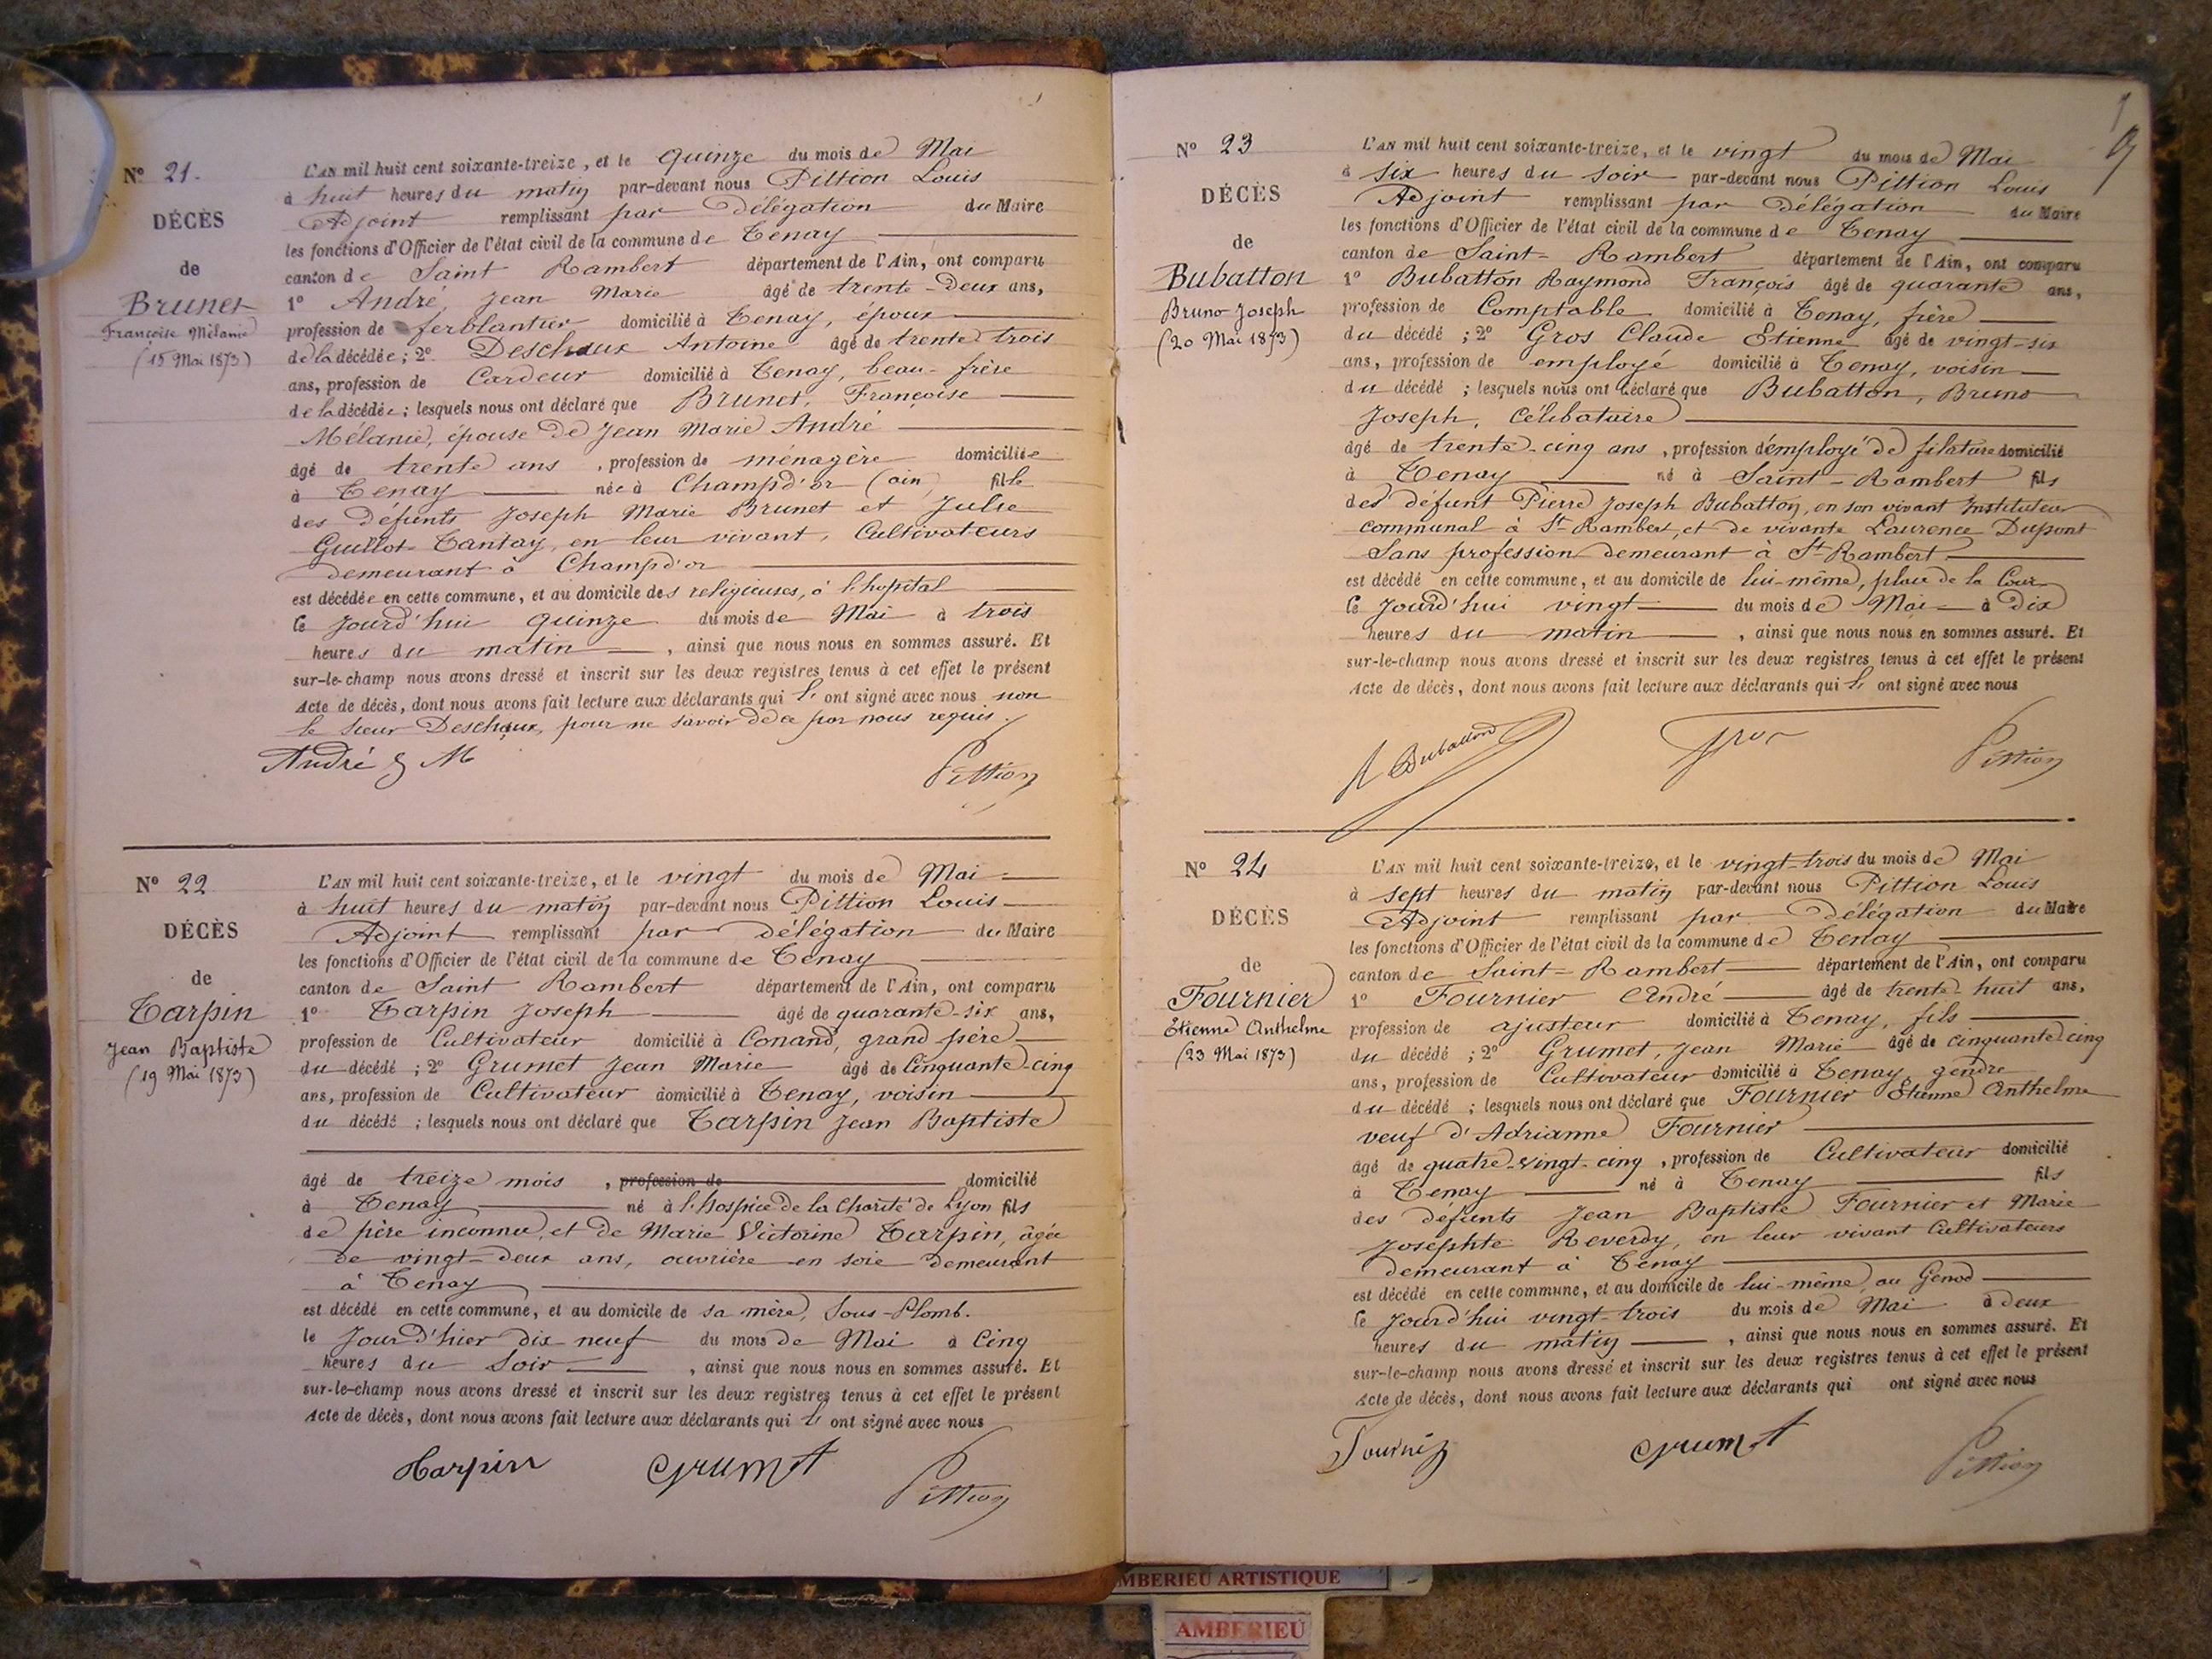 N° 21.
DÉCÈS
de
Brunet
Françoise Mélanie
(15 Mai 1873)
L'AN mil huit cent soixante-treize, et le quinze du mois de Mai
à huit heures du matin par-devant nous Pittion Louis
Adjoint remplissant par Délégation du Maire
les fonctions d'Officier de l'état civil de la commune de Tenay
canton de Saint Rambert département de l'Ain, ont comparu
1° André, Jean Marie âgé de trente-deux ans,
profession de ferblantier domicilié à Tenay, époux
de la décédée; 2° Deschaux Antoine âgé de trente trois
ans, profession de Cardeur domicilié à Tenay, beau-frère
de la décédée; lesquels nous ont déclaré que Brunet, Françoise
Mélanie, épouse de Jean Marie André
âgé de trente ans, profession de ménagère domiciliée
à Tenay née à Champd'or (ain) fille
des défunts Joseph Marie Brunet et Julie
Guillot-Tantay, en leur vivant, Cultivateurs
demeurant à Champd'or
est décédée en cette commune, et au domicile des religieuses, à l'hopital
le jourd'hui quinze du mois de Mai à trois
heures du matin, ainsi que nous nous en sommes assuré. Et
sur-le-champ nous avons dressé et inscrit sur les deux registres tenus à cet effet le présent
Acte de décès, dont nous avons fait lecture aux déclarants qui ont signé avec nous non
le sieur Deschaux, pour ne savoir de ce par nous requis.
André J M
Pittion
N° 22
DÉCÈS
de
Tarpin
Jean Baptiste
(19 Mai 1873)
L'AN mil huit cent soixante-treize, et le vingt du mois de Mai
à huit heures du matin par-devant nous Pittion Louis
Adjoint remplissant par délégation du Maire
les fonctions d'Officier de l'état civil de la commune de Tenay
canton de Saint Rambert département de l'Ain, ont comparu
1° Tarpin Joseph âgé de quarante-six ans,
profession de Cultivateur domicilié à Conand, grand père
du décédé; 2° Grumet Jean Marie âgé de Cinquante-cinq
ans, profession de Cultivateur domicilié à Tenay, voisin
du décédé; lesquels nous ont déclaré que Tarpin Jean Baptiste
âgé de treize mois, profession de domicilié
à Tenay né à l'hospice de la Charité de Lyon fils
de père inconnu, et de Marie Victorine Tarpin, âgée
de vingt-deux ans, ouvrière en soie demeurant
à Tenay
est décédé en cette commune, et au domicile de sa mère, Sous-Plomb.
le jourd'hier dix neuf du mois de Mai à Cinq
heures du Soir, ainsi que nous nous en sommes assuré. Et
sur-le-champ nous avons dressé et inscrit sur les deux registres tenus à cet effet le présent
Acte de décès, dont nous avons fait lecture aux déclarants qui ont signé avec nous
Tarpin
Grumet
Pittion
N° 23
DÉCÈS
de
Bubatton
Bruno Joseph
(20 Mai 1873)
L'AN mil huit cent soixante-treize, et le vingt du mois de Mai
à six heures du soir par-devant nous Pittion Louis
Adjoint remplissant par Délégation du Maire
les fonctions d'Officier de l'état civil de la commune de Tenay
canton de Saint-Rambert département de l'Ain, ont comparu
1° Bubatton Raymond François âgé de quarante ans,
profession de Comptable domicilié à Tenay, frère
du décédé; 2° Gros Claude Etienne âgé de vingt-six
ans, profession de employé domicilié à Tenay, voisin
du décédé; lesquels nous ont déclaré que Bubatton, Bruno
Joseph, Célibataire
âgé de trente-cinq ans, profession d'employé de filature domicilié
à Tenay né à Saint-Rambert fils
des défunt Pierre Joseph Bubatton, en son vivant Instituteur
communal à St Rambert, et de vivante Laurence Dupont
Sans profession demeurant à St Rambert
est décédé en cette commune, et au domicile de lui-même, place de la Cour
le jourd'hui vingt du mois de Mai à Dix
heures du matin, ainsi que nous nous en sommes assuré. Et
sur-le-champ nous avons dressé et inscrit sur les deux registres tenus à cet effet le présent
Acte de décès, dont nous avons fait lecture aux déclarants qui ont signé avec nous
Bubatton
Gros
Pittion
N° 24
DÉCÈS
de
Fournier
Etienne Anthelme
(23 Mai 1873)
L'AN mil huit cent soixante-treize, et le vingt-trois du mois de Mai
à sept heures du matin par-devant nous Pittion Louis
Adjoint remplissant par délégation du Maire
les fonctions d'Officier de l'état civil de la commune de Tenay
canton de Saint-Rambert département de l'Ain, ont comparu
1° Fournier André âgé de trente-huit ans,
profession de ajusteur domicilié à Tenay, fils
du décédé; 2° Grumet, Jean Marie âgé de cinquante-cinq
ans, profession de Cultivateur domicilié à Tenay, gendre
du décédé; lesquels nous ont déclaré que Fournier Etienne Anthelme
veuf d'Adrianne Fournier
âgé de quatre-vingt-cinq, profession de Cultivateur domicilié
à Tenay né à Tenay fils
des défunts Jean Baptiste Fournier et Marie
Josephte Reverdy, en leur vivant Cultivateurs
demeurant à Tenay
est décédé en cette commune, et au domicile de lui-même, au Genod
le jourd'hui vingt-trois du mois de Mai à deux
heures du matin, ainsi que nous nous en sommes assuré. Et
sur-le-champ nous avons dressé et inscrit sur les deux registres tenus à cet effet le présent
Acte de décès, dont nous avons fait lecture aux déclarants qui ont signé avec nous
Fournier
Grumet
Pittion
MBERIEU ARTISTIQUE
AMBERIEU